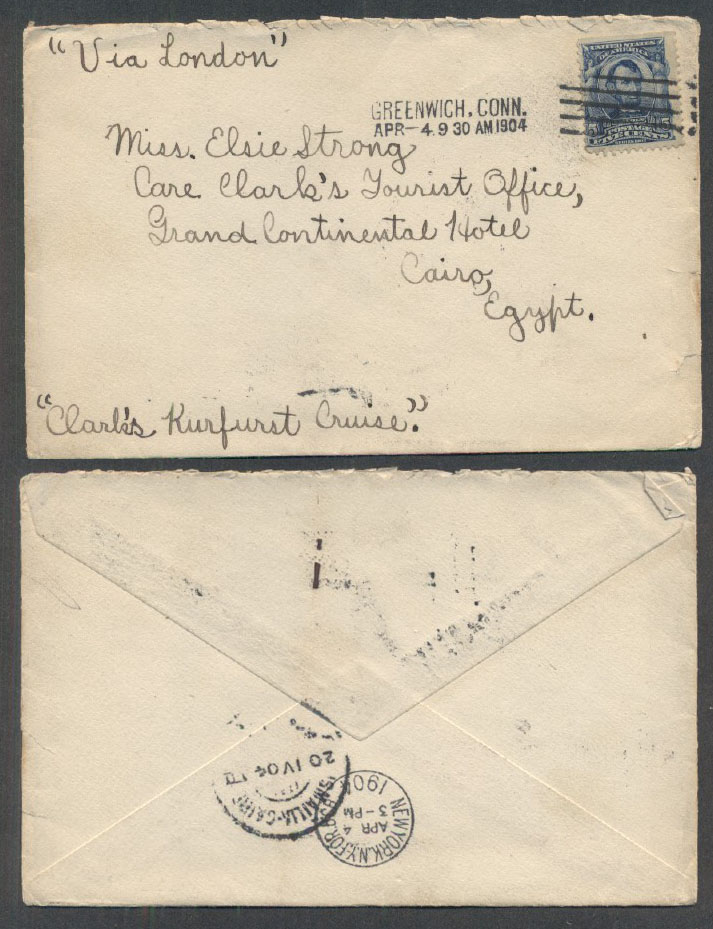 "Via London"
UNITED STATES
OF AMERICA
GREENWICH, CONN.
APR-4.9 30 AM 1904
POSTAGE
FIVE CENTS
Miss. Elsie Strong
Care Clark's Tourist Office,
Grand Continental Hotel
Cairo,
Egypt.
"Clark's Kurfurst Cruise".
20 IV 04
ISMAILIA-CAIRO
NEW YORK, N.Y.
APR 4
3-PM
1904